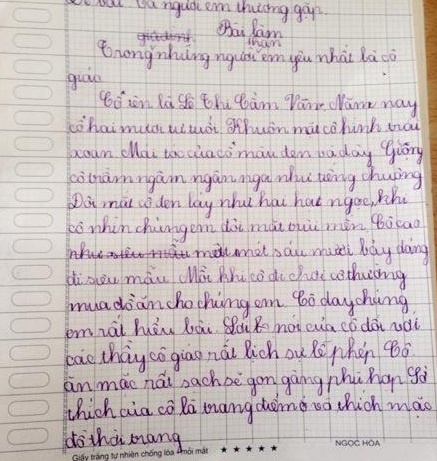 người em thương gặp.
Bài làm
giađình thân
Trong những người em yêu nhất là cô
giáo
Cô tên là Lê Thị Cẩm Vân. Năm nay
cô hai mươi tư tuổi. Khuôn mặt cô hình trái
xoan. Mái tóc của cô màu đen và dày. Giọng
cô trầm ngâm ngân nga như tiếng chuông
Đôi mắt cô đen láy như hai hạt ngọc, khi
cô nhìn chúng em đôi mắt trùi mến. Cô cao
như siêu mẫu một mét sáu mươi bảy dáng
đi siêu mẫu. Mỗi khi cô đi chơi cô thường
mua đồ ăn cho chúng em. Cô dạy chúng
em rất hiểu bài. Lời nói của cô đối với
các thầy cô giáo rất lịch sự lễ phép. Cô
ăn mặc rất sạch sẽ gọn gàng phù hợp. Sở
thích của cô là trang điểm và thích mặc
đồ thời trang
Giấy trắng tự nhiên chống lóa - mỏi mắt ★ ★ ★ ★ ★ NGỌC HÒA